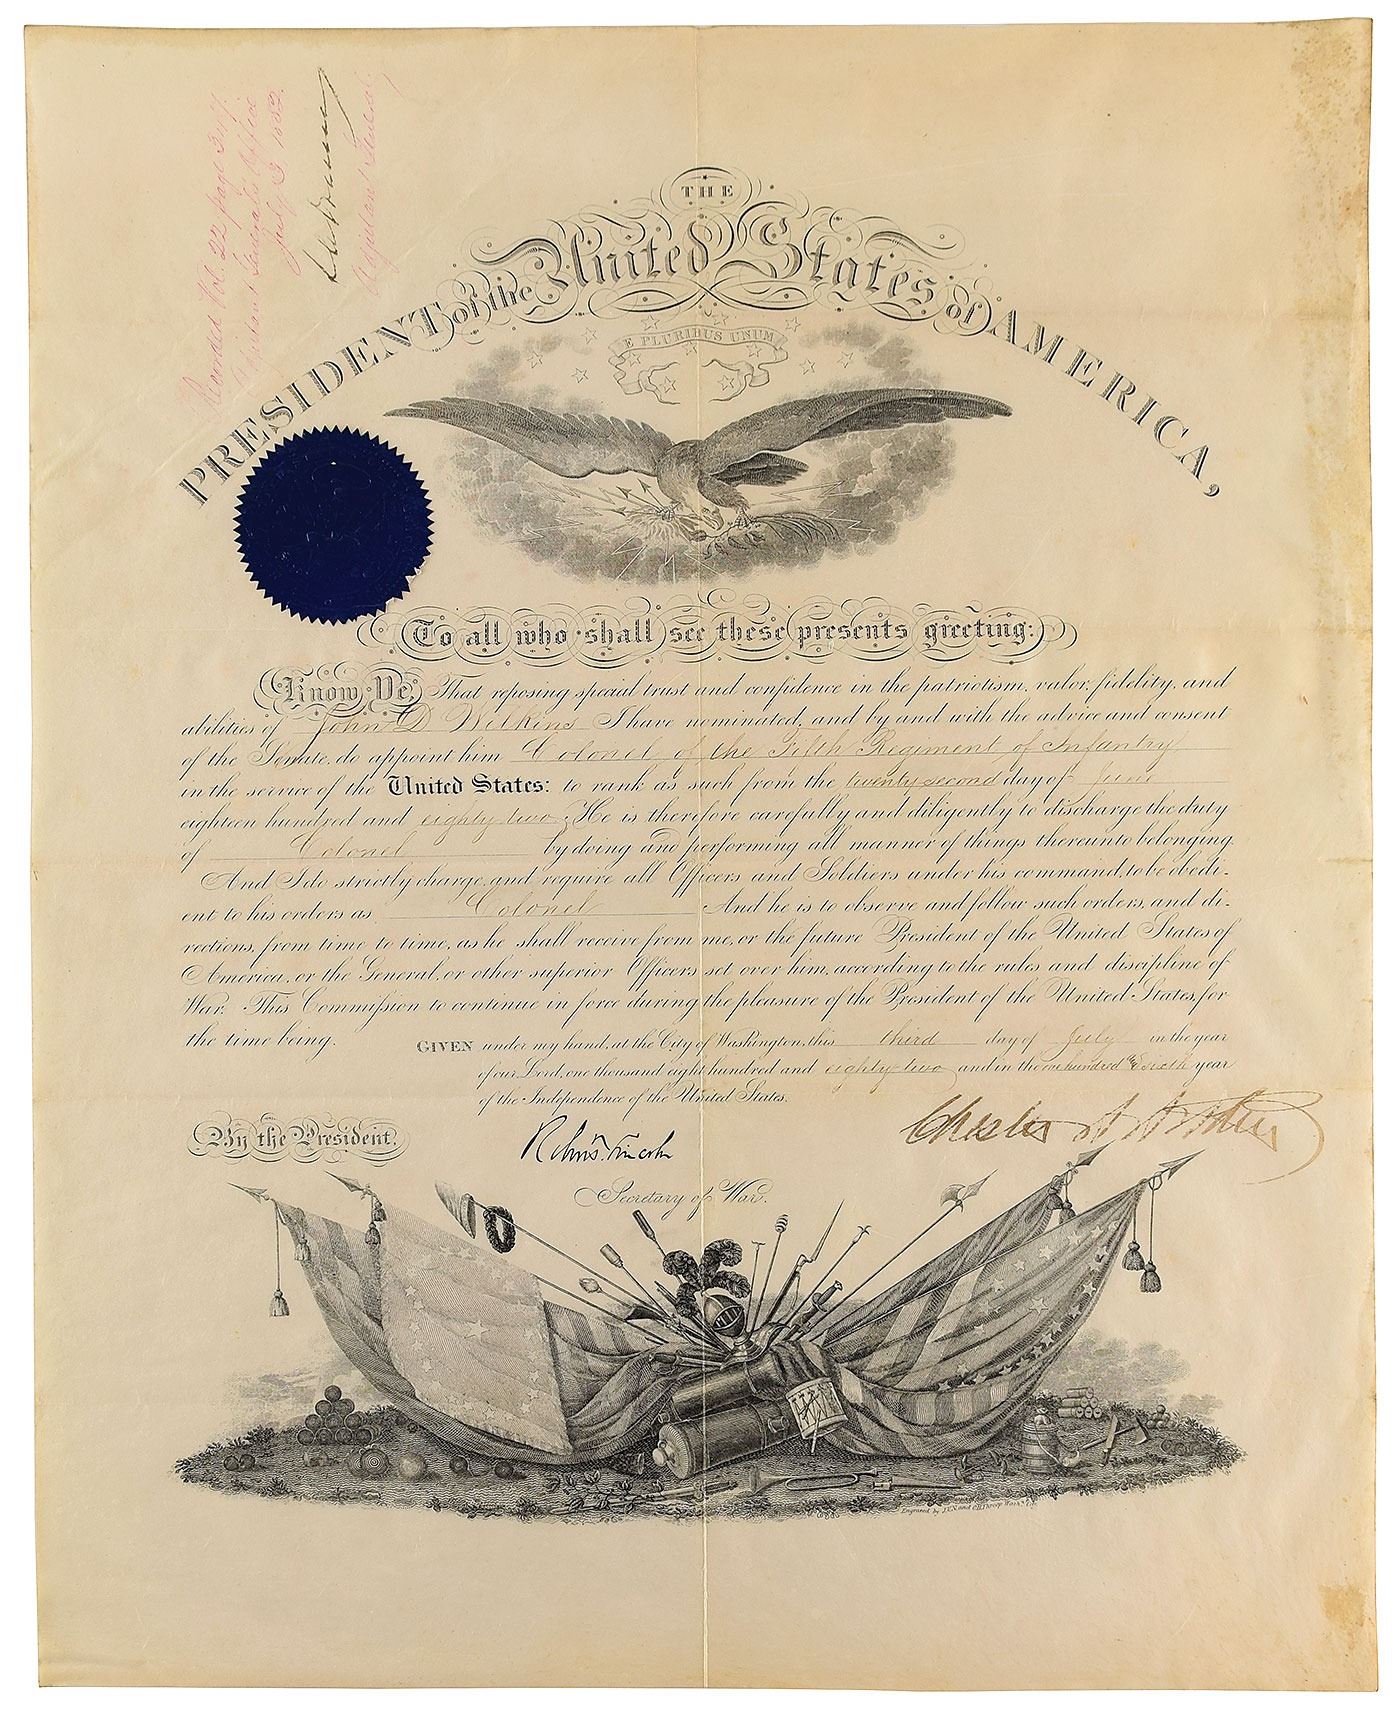 Recorded Vol. 22 page 317.
Adjutant General's Office
July 3, 1882.
Adjutant General.
THE
PRESIDENT of the United States of AMERICA,
E PLURIBUS UNUM
To all who shall see these presents greeting:
Know Ye, That reposing special trust and confidence in the patriotism, valor, fidelity, and
abilities of John D Wilkins I have nominated, and by and with the advice and consent
of the Senate, do appoint him Colonel of the Fifth Regiment of Infantry
in the service of the United States: to rank as such from the twenty second day of June
eighteen hundred and eighty two. He is therefore carefully and diligently to discharge the duty
of Colonel by doing and performing all manner of things thereunto belonging.
And I do strictly charge, and require all Officers and Soldiers under his command, to be obedi-
ent to his orders as Colonel And he is to observe and follow such orders, and di-
rections, from time to time, as he shall receive from me, or the future President of the United States of
America, or the General, or other superior Officers set over him, according to the rules and discipline of
War. This Commission to continue in force during the pleasure of the President of the United States, for
the time being.
GIVEN under my hand, at the City of Washington, this third day of July in the year
of our Lord, one thousand eight hundred and eighty two, and in the one hundred & Sixth year
of the Independence of the United States.
Chester A Arthur
By the President.
Robt. T. Lincoln
Secretary of War.
Engraved by J.V.N. and O.H. Throop Wash